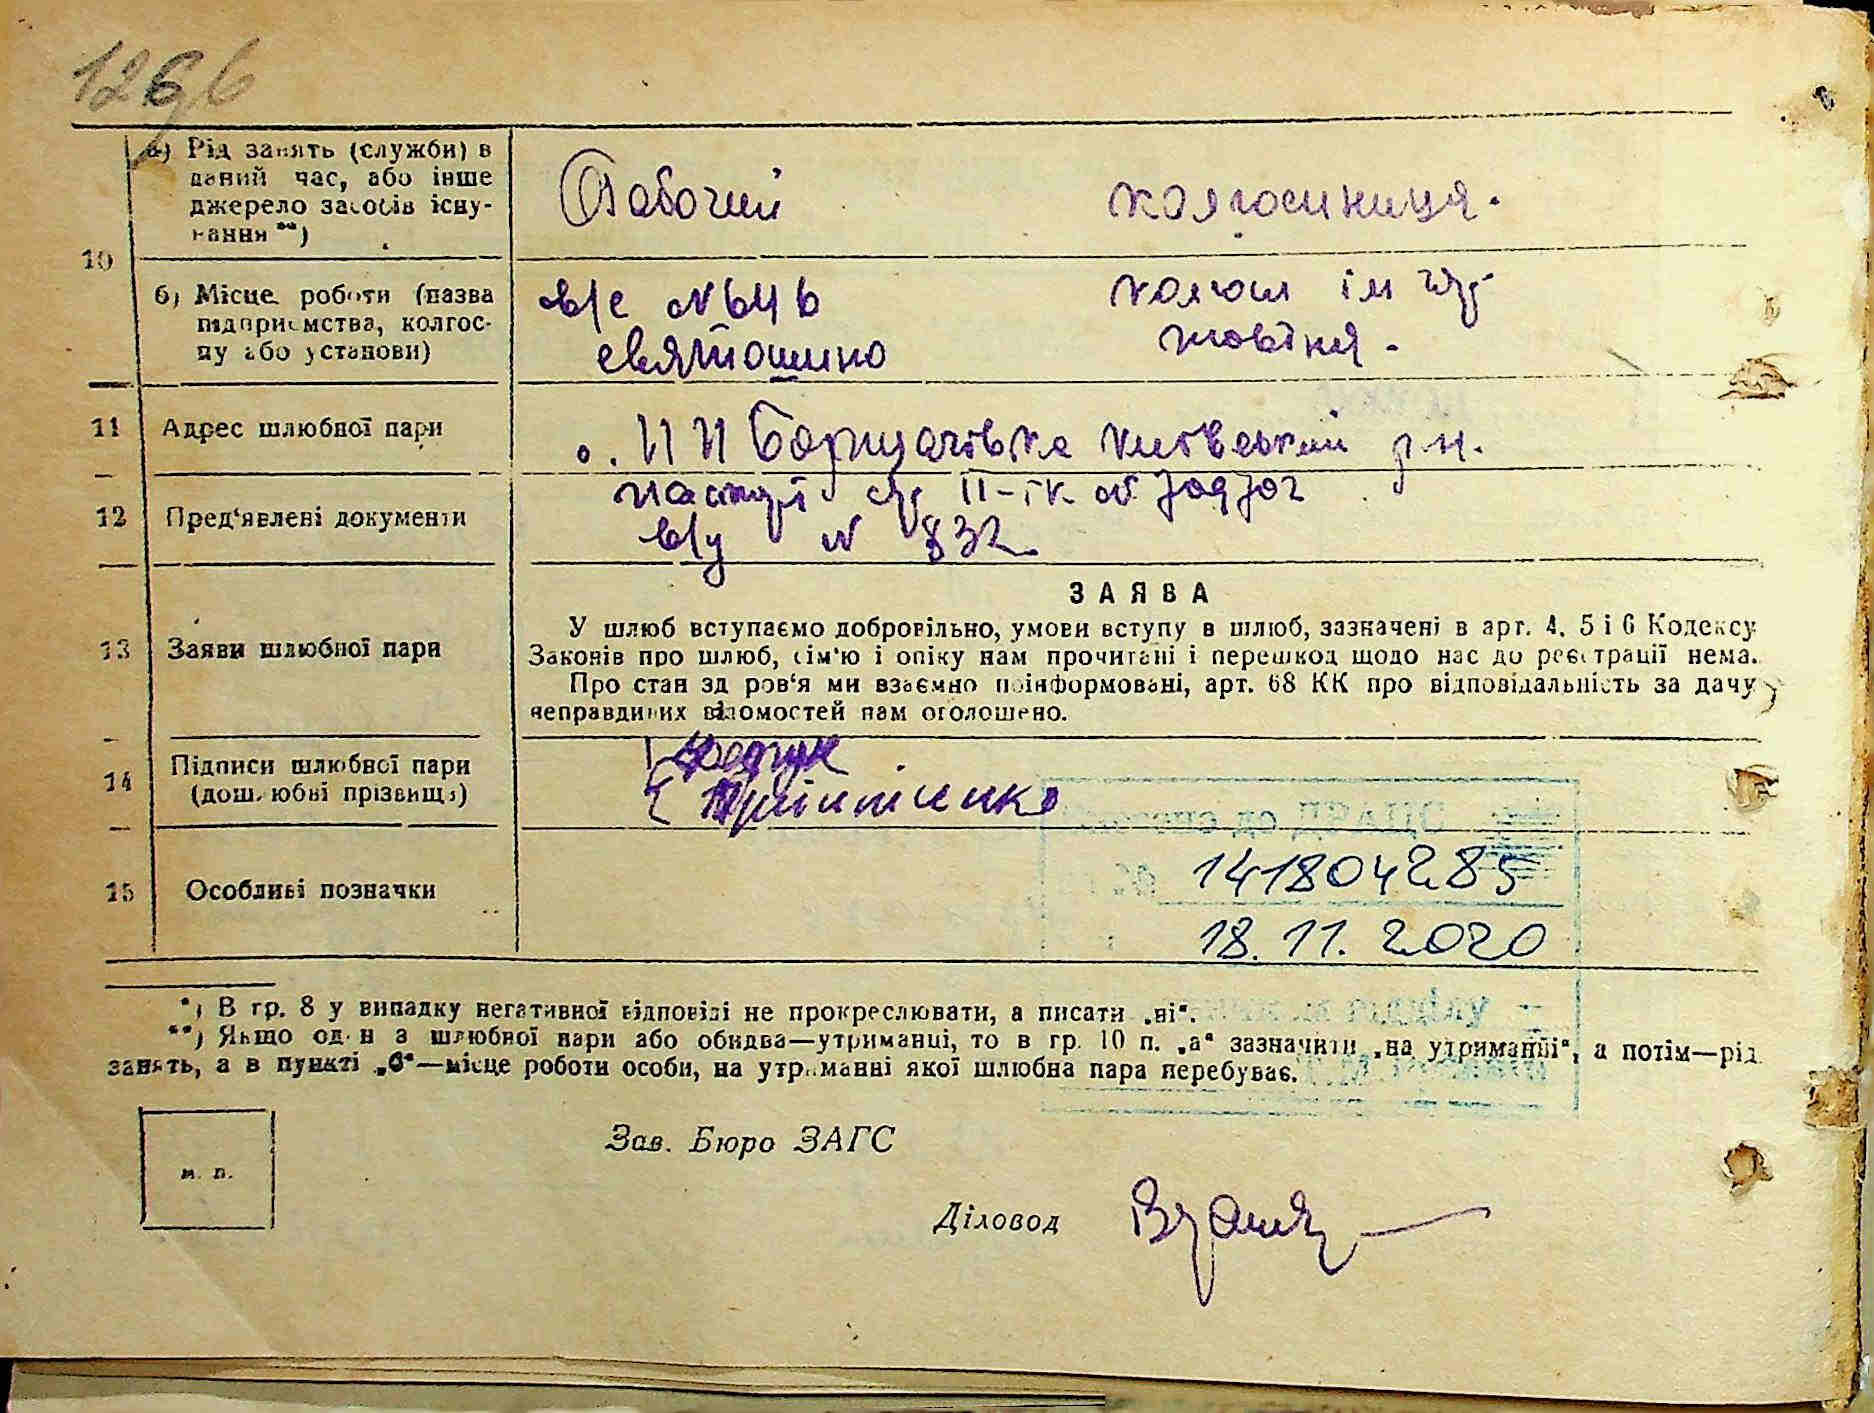 а) Рід занять (служби) в
даний час, або інше
джерело засобів існу-
вання **)
Рабочий колгоспниця.
10
б) Місце роботи (назва
підприємства, колгос-
пу або установи)
в/с №
святошино
колгосп ім
жовтня.
11 Адрес шлюбної пари
Борщагівка Київський р-н.
12 Пред‘явлені документи
паспорт II-ік №
в/у № 832
13 Заяви шлюбної пари
ЗАЯВА
У шлюб вступаємо добровільно, умови вступу в шлюб, зазначені в арт. 4, 5 і 6 Кодексу
Законів про шлюб, сім‘ю і опіку нам прочитані і перешкод щодо нас до реєстрації нема.
Про стан здоров‘я ми взаємно поінформовані, арт. 68 КК про відповідальність за дачу
неправдивих відомостей нам оголошено.
14 Підписи шлюбної пари
(дошлюбні прізвища)
15 Особливі позначки
141804285
18.11.2020
*) В гр. 8 у випадку негативної відповіді не прокреслювати, а писати „ні“.
**) Якщо один з шлюбної пари або обидва—утриманці, то в гр. 10 п. „а“ зазначити „на утриманні“, а потім—рід
занять, а в пункті „б“—місце роботи особи, на утриманні якої шлюбна пара перебуває.
м. п.
Зав. Бюро ЗАГС
Діловод